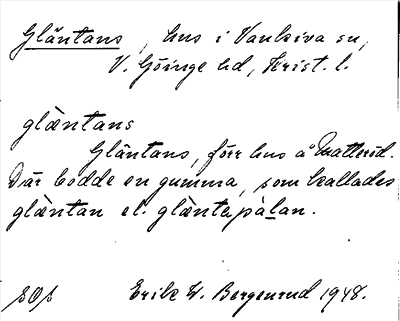 Gläntans, hus i Vankiva sn,
V. Göinge hd, Krist. l.
glæntans
Gläntans, förr hus å Matteröd.
Där bodde en gumma, som kallades
glæntan el. glæntapàlan.
SOS Erik W. Bergenrud 1948.